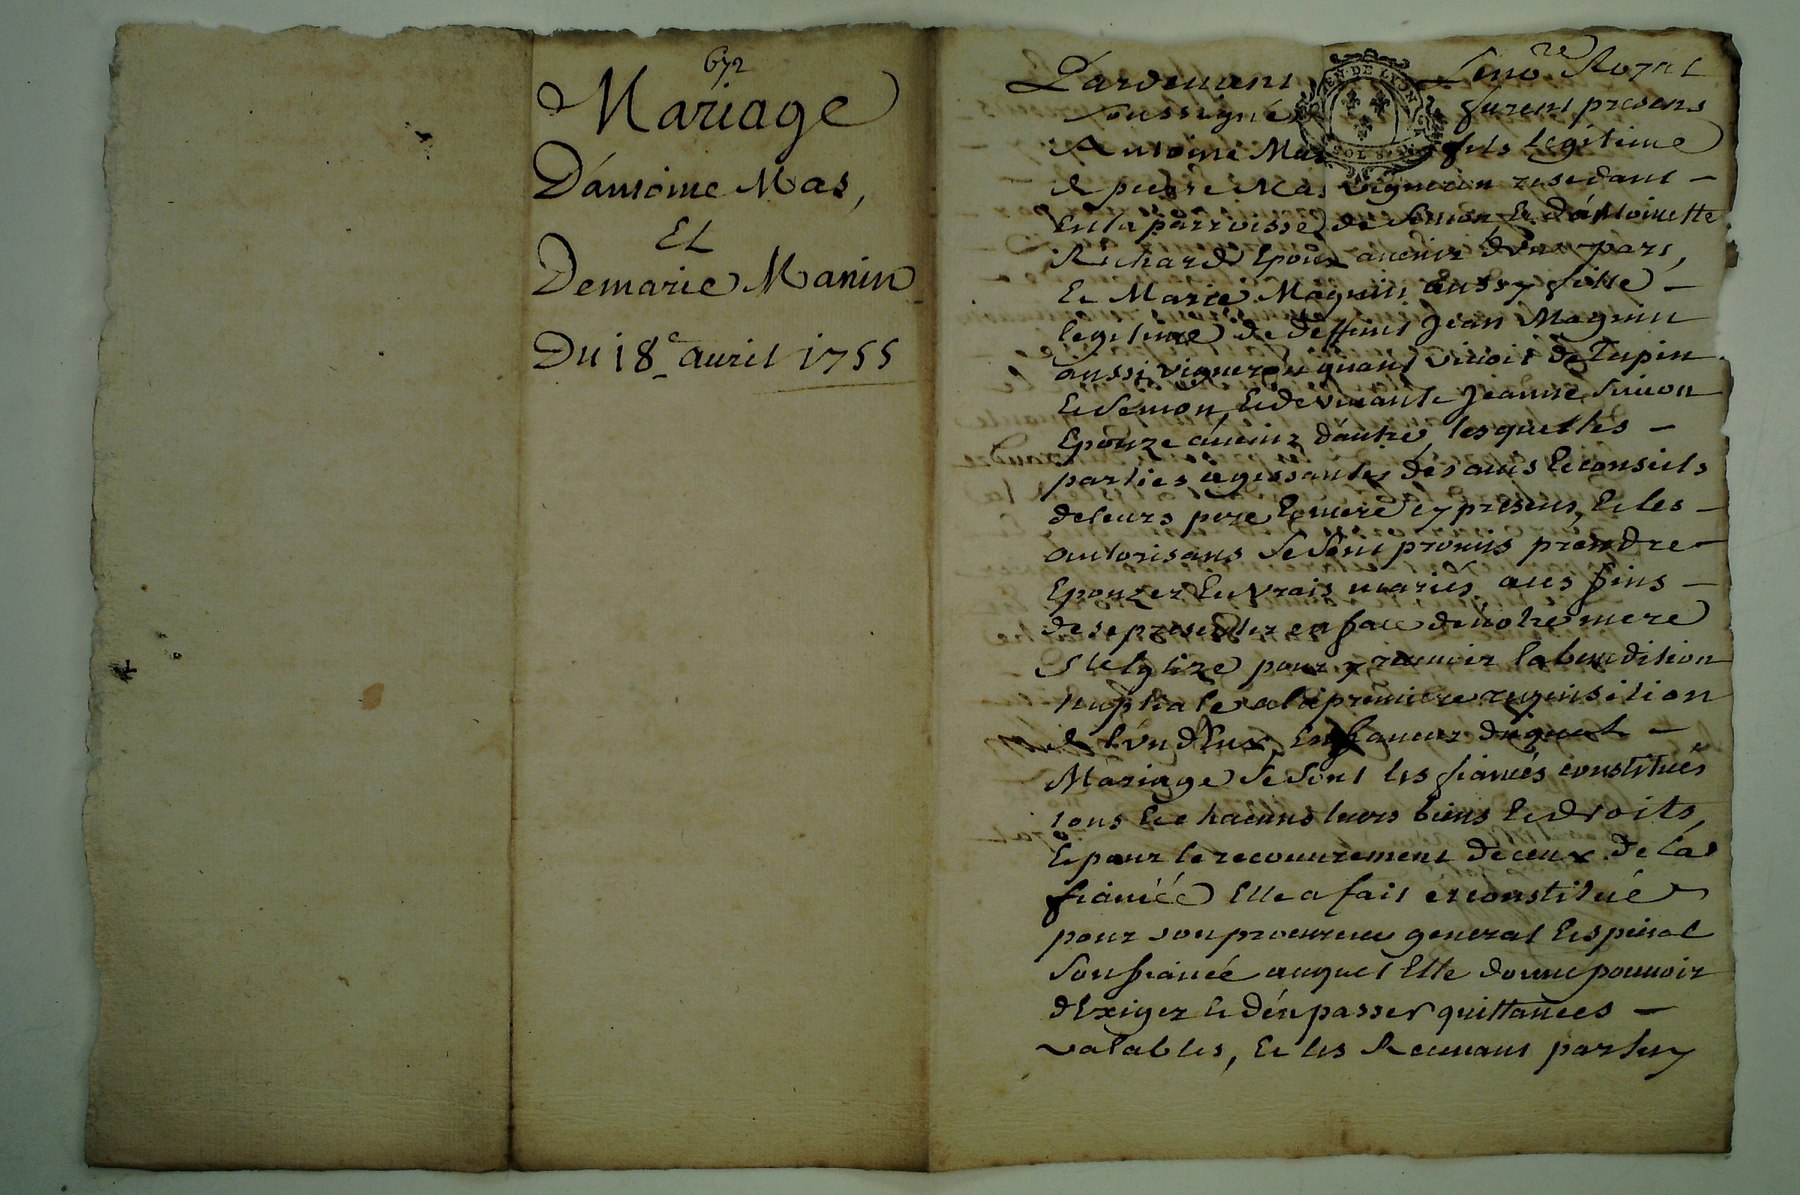 672
Mariage
D'antoine Mas,
Et
De marie Manin
Du 18e avril 1755
Pardevant Le nore Royal
soussigné furent presens
GEN. DE LYON
SOLS
Antoine Mas fils legitime
de pierre Mas vigneron residant -
En la parroisse de Semon Et d'antoinette
Richard Epoux avenir d'une part,
Et Marie Magnin aussy fille -
legitime de deffunt Jean Magnin
aussi vigneron quand vivoit de Tupin
Et Semon, Et de vivante Jeanne Simon
Epouze avenir d'autre, lesquelles -
parties agissantes des avis Et conseils
de leurs pere Et mere cy presens, Et les -
autorisans se sont promis prendre -
Epouzer En vrais mariés aux fins -
de se presenter en face de nôtre mere
Ste Eglize pour y recevoir la benediction
nuptiale a la premiere requisition
de l'un d'Eux, En faveur duquel -
Mariage se sont les fiancés constitués
tous Et chacuns leurs biens Et droits,
Et pour le recouvrement de ceux de la
fiancée Elle a fait et constitué
pour son procureur general Et special
son fiancé auquel Elle donne pouvoir
d'Exiger Et d'en passer quittances -
valables, Et les Recevant par luy